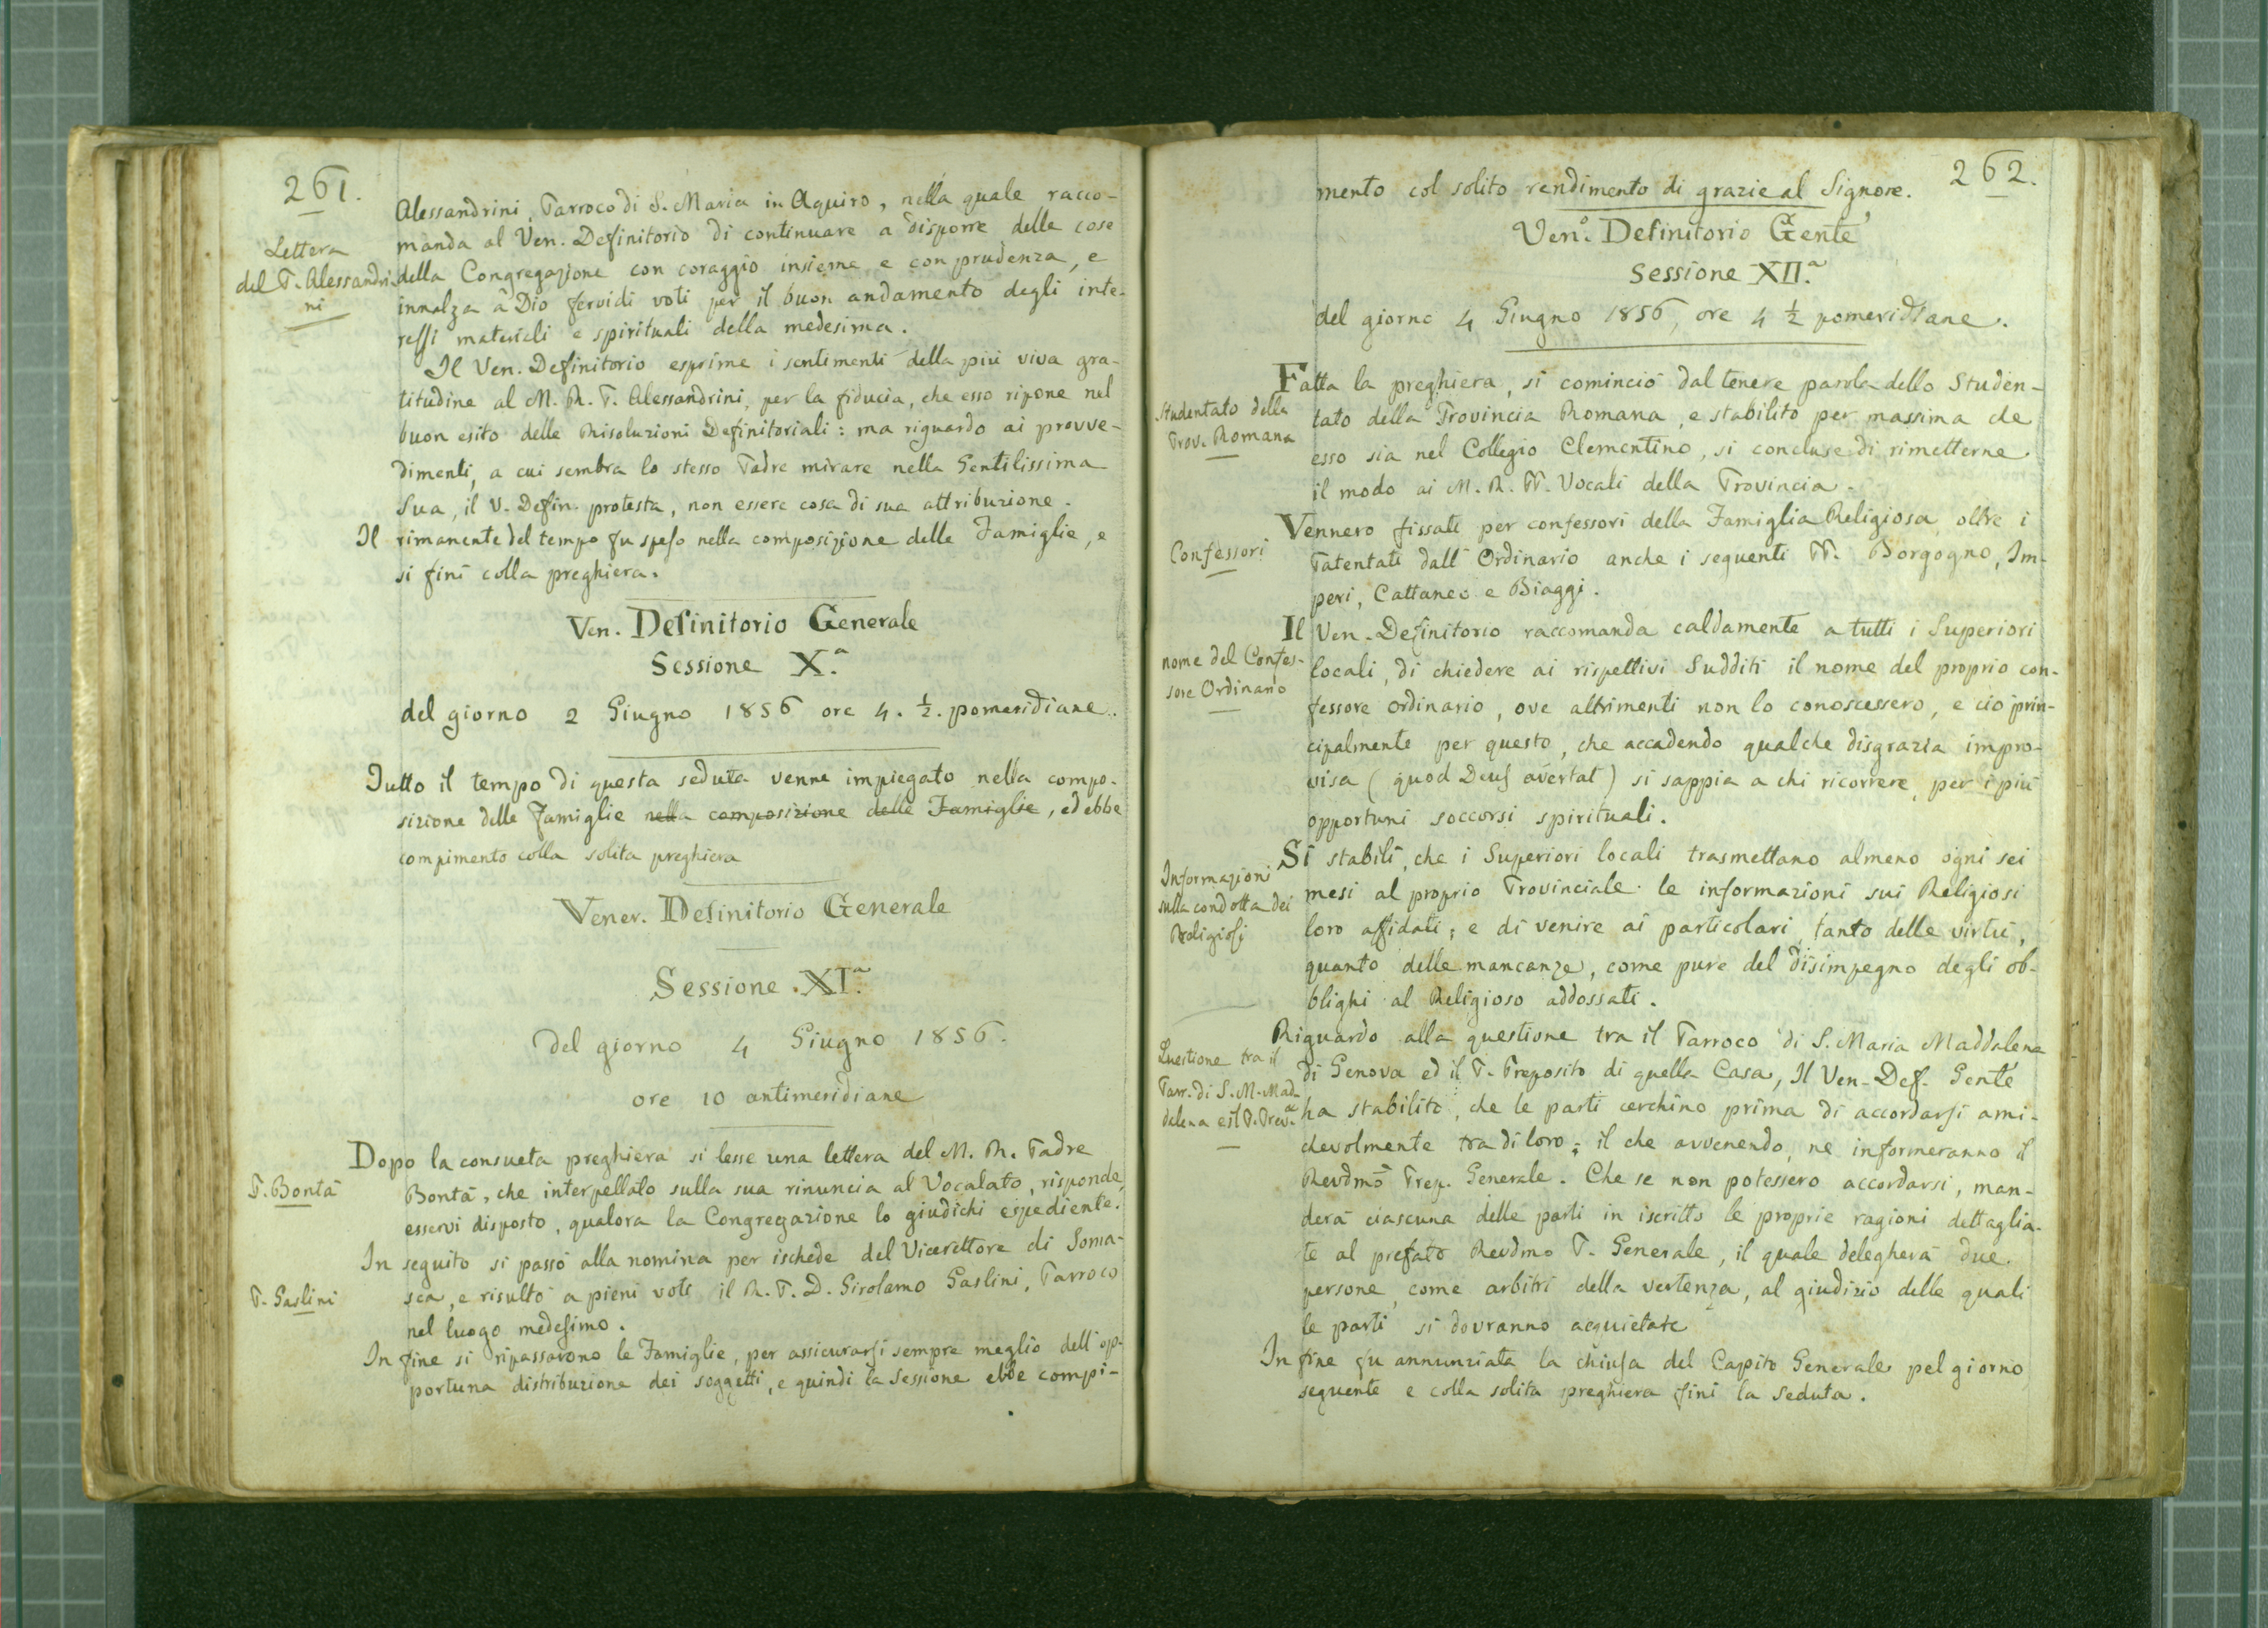 261.
Alessandrini, Parroco di S. Maria in Aquiro, nella quale racco-
manda al Ven. Definitorio di continuare a disporre delle cose
Lettera
del P. Alessandri-
ni
della Congregazione con coraggio insieme e con prudenza, e
innalza a Dio fervidi voti per il buon andamento degli inte-
ressi materiali e spirituali della medesima.
Il Ven. Definitorio esprime i sentimenti della più viva gra-
titudine al M. R. P. Alessandrini, per la fiducia, che esso ripone nel
buon esito delle Risoluzioni Definitoriali: ma riguardo ai provve-
dimenti, a cui sembra lo stesso Padre mirare nella Gentilissima
Sua, il V. Defin. protesta, non essere cosa di sua attribuzione.
Il rimanente del tempo fu speso nella composizione delle Famiglie, e
si finì colla preghiera.
Ven. Definitorio Generale
Sessione X.ª
del giorno 2 Giugno 1856 ore 4. ½. pomeridiane.
Tutto il tempo di questa seduta venne impiegato nella compo-
sizione delle Famiglie nella composizione delle Famiglie, ed ebbe
compimento colla solita preghiera
Vener. Definitorio Generale
Sessione XI.ª
del giorno 4 Giugno 1856.
ore 10 antimeridiane
Dopo la consueta preghiera si lesse una lettera del M. R. Padre
P. Bontà
Bontà, che interpellato sulla sua rinuncia al Vocalato, risponde,
esservi disposto, qualora la Congregazione lo giudichi espediente.
In seguito si passò alla nomina per ischede del Vicerettore di Soma-
P. Gaslini
sca, e risultò a pieni voti il R. P. D. Girolamo Gaslini, Parroco
nel luogo medesimo.
In fine si ripassarono le Famiglie, per assicurarsi sempre meglio dell'op-
portuna distribuzione dei soggetti, e quindi la Sessione ebbe compi-
262.
mento col solito rendimento di grazie al Signore.
Ven.º Definitorio Gen̄te
Sessione XII.ª
del giorno 4 Giugno 1856, ore 4 ½ pomeridiane.
Fatta la preghiera, si cominciò dal tenere parola dello Studen-
Studentato della
Prov. Romana
tato della Provincia Romana, e stabilito per massima che
esso sia nel Collegio Clementino, si concluse di rimetterne
il modo ai M. R. PP. Vocali della Provincia.
Vennero fissati per confessori della Famiglia Religiosa oltre i
Confessori
Patentati dall'Ordinario anche i seguenti PP. Borgogno, Im-
peri, Cattaneo e Biaggi.
Il Ven. Definitorio raccomanda caldamente a tutti i Superiori
nome del Confes-
sore Ordinario
locali, di chiedere ai rispettivi Sudditi il nome del proprio con-
fessore ordinario, ove altrimenti non lo conoscessero, e ciò prin-
cipalmente per questo, che accadendo qualche disgrazia impro-
visa (quod Deus avertat) si sappia a chi ricorrere, per i più
opportuni soccorsi spirituali.
Si stabilì, che i Superiori locali trasmettano almeno ogni sei
Informazioni
sulla condotta dei
Religiosi
mesi al proprio Provinciale le informazioni sui Religiosi
loro affidati; e di venire ai particolari, tanto delle virtù,
quanto delle mancanze, come pure del disimpegno degli ob-
blighi al Religioso addossati.
Riguardo alla questione tra il Parroco di S. Maria Maddalena
Questione tra il
Parr. di S. M. Mad-
dalena e il P. Prev.º
di Genova ed il P. Preposito di quella Casa, Il Ven. Def. Gente
ha stabilito, che le parti cerchino prima di accordarsi ami-
chevolmente tra di loro; il che avvenendo, ne informeranno il
Revd̄mo Prep. Generale. Che se non potessero accordarsi, man-
derà ciascuna delle parti in iscritto le proprie ragioni dettaglia-
te al prefato Revdmo P. Generale, il quale delegherà due
persone, come arbitri della vertenza, al giudizio delle quali
le parti si dovranno acquietare
In fine fu annunziata la chiusa del Capito Generale pel giorno
seguente e colla solita preghiera finì la seduta.